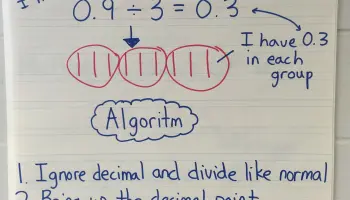 0.9 ÷ 3 = 0.3
I have 0.3
in each
group
Algoritm
1. Ignore decimal and divide like normal
2. Bring up the decimal point